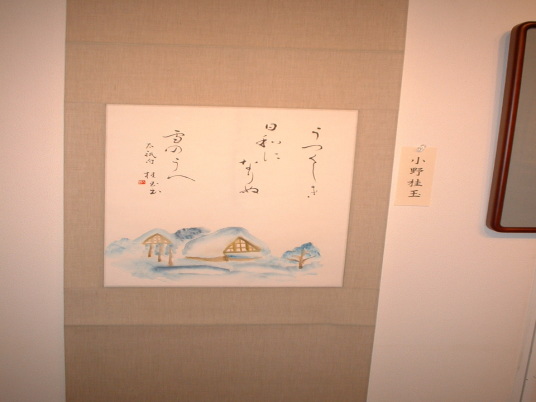 うつくしき
日和に
なりぬ
雪のうへ
太祇句 桂玉書
小野桂玉